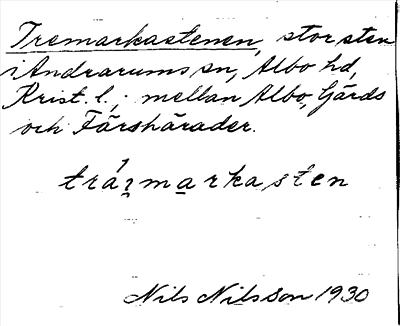 Tremarkastenen, stor sten
i Andrarums sn, Albo hd,
Krist. l.; mellan Albo, Gärds
och Färs härader.
trármarkasten
Nils Nilsson 1930